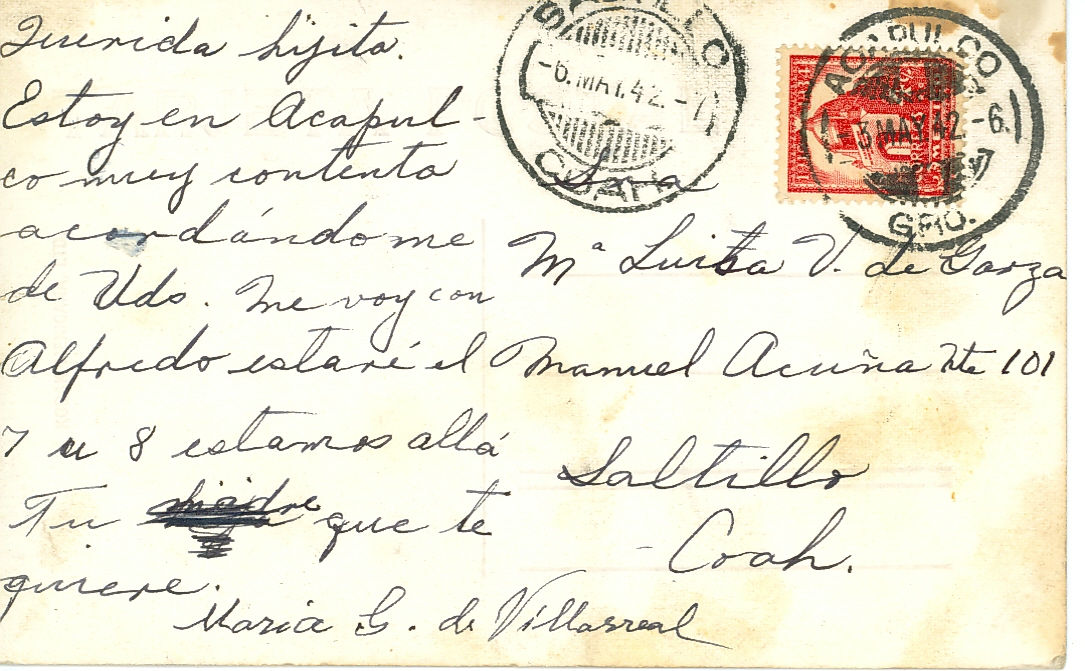 Querida hijita.
Estoy en Acapul-
co muy contenta
acordándome
de Uds. Me voy con
Alfredo estaré el
7 u 8 estamos allá
Tu madre que te
quiere.
Maria G. de Villarreal
SALTILLO
-6.MAY.42.-
COAH.
ACAPULCO
-3 MAY 42.-6.
GRO.
Sra
Mª Luisa V. de Garza
Manuel Acuña Nte 101
Saltillo
- Coah.